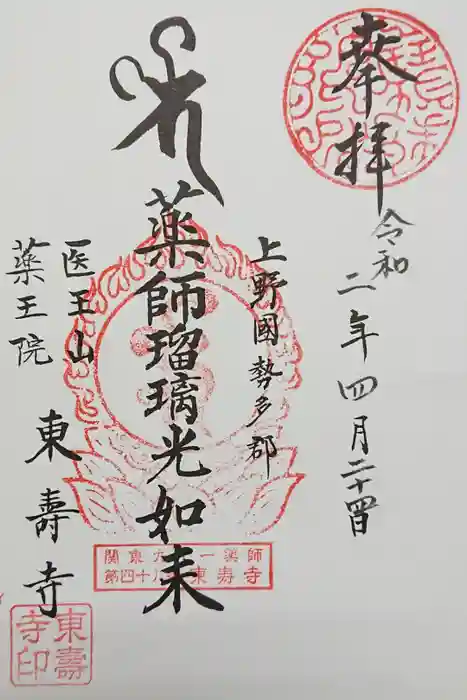 奉拝
令和二年四月二十四日
上野國勢多郡
薬師瑠璃光如来
医王山
薬王院
東壽寺
関東九十一薬師
第四十八 東壽寺
東壽寺印